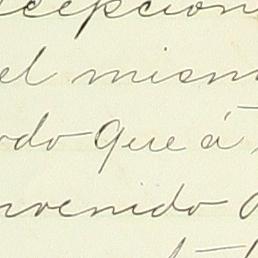 cepcion
el mism
odo que á
nvenido